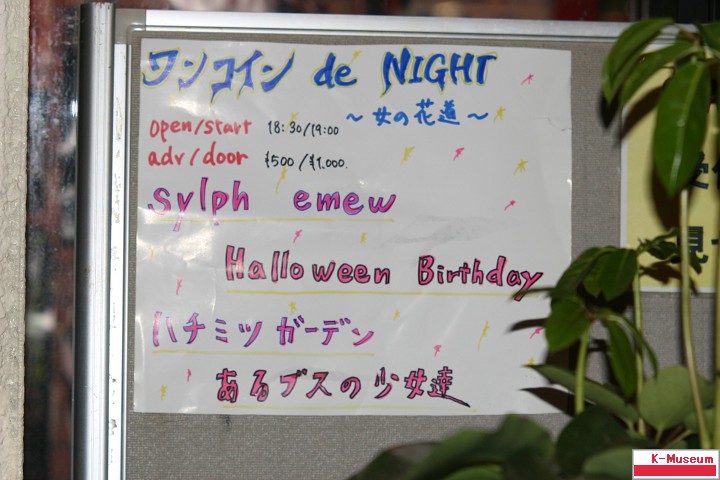 ワンコイン de NIGHT
～女の花道～
open/start 18:30/19:00
adv/door ¥500/¥1,000.
sylph emew
Halloween Birthday
ハチミツガーデン
あるブスの少女達
K-Museum